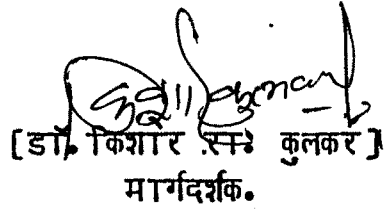 [डॉ. किशोर स. कुलकर]
मार्गदर्शक.